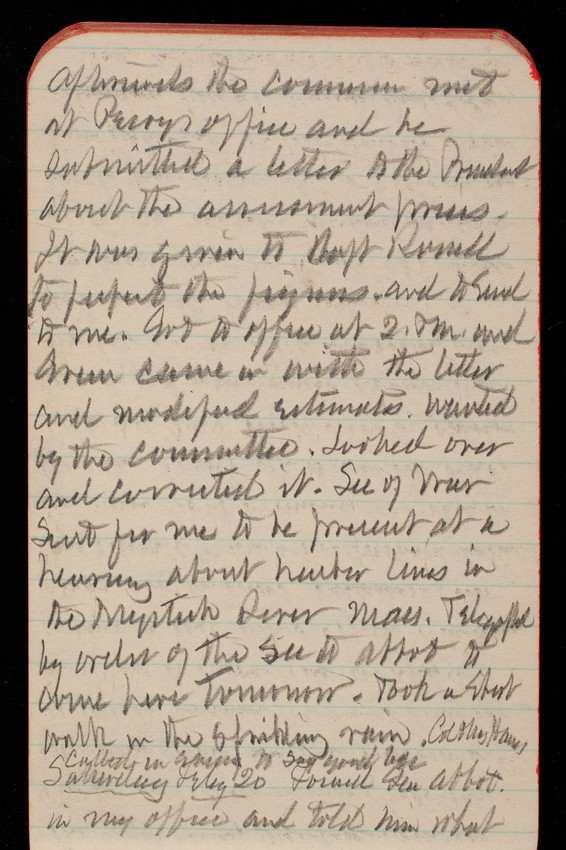 afterwards the common met
at Perrys office and he
submitted a letter to the President
about the assessment press.
It was given to Capt Russell
to perfect the figures. and to send
to me. Got to office at 2. P.m. and
Green came in with the letter
and modified estimates. wanted
by the committee. Looked over
and corrected it. Sec of War
Sent for me to be present at a
hearing about harbor lines in
the Mystick River Mass. Telegraphed
by order of the Sec to Abbot to
come here tomorrow. Took a short
walk in the sprinkling rain. Col
Called in evening to say good bye
Saturday Feby 20 Found Gen Abbot.
in my office and told him what